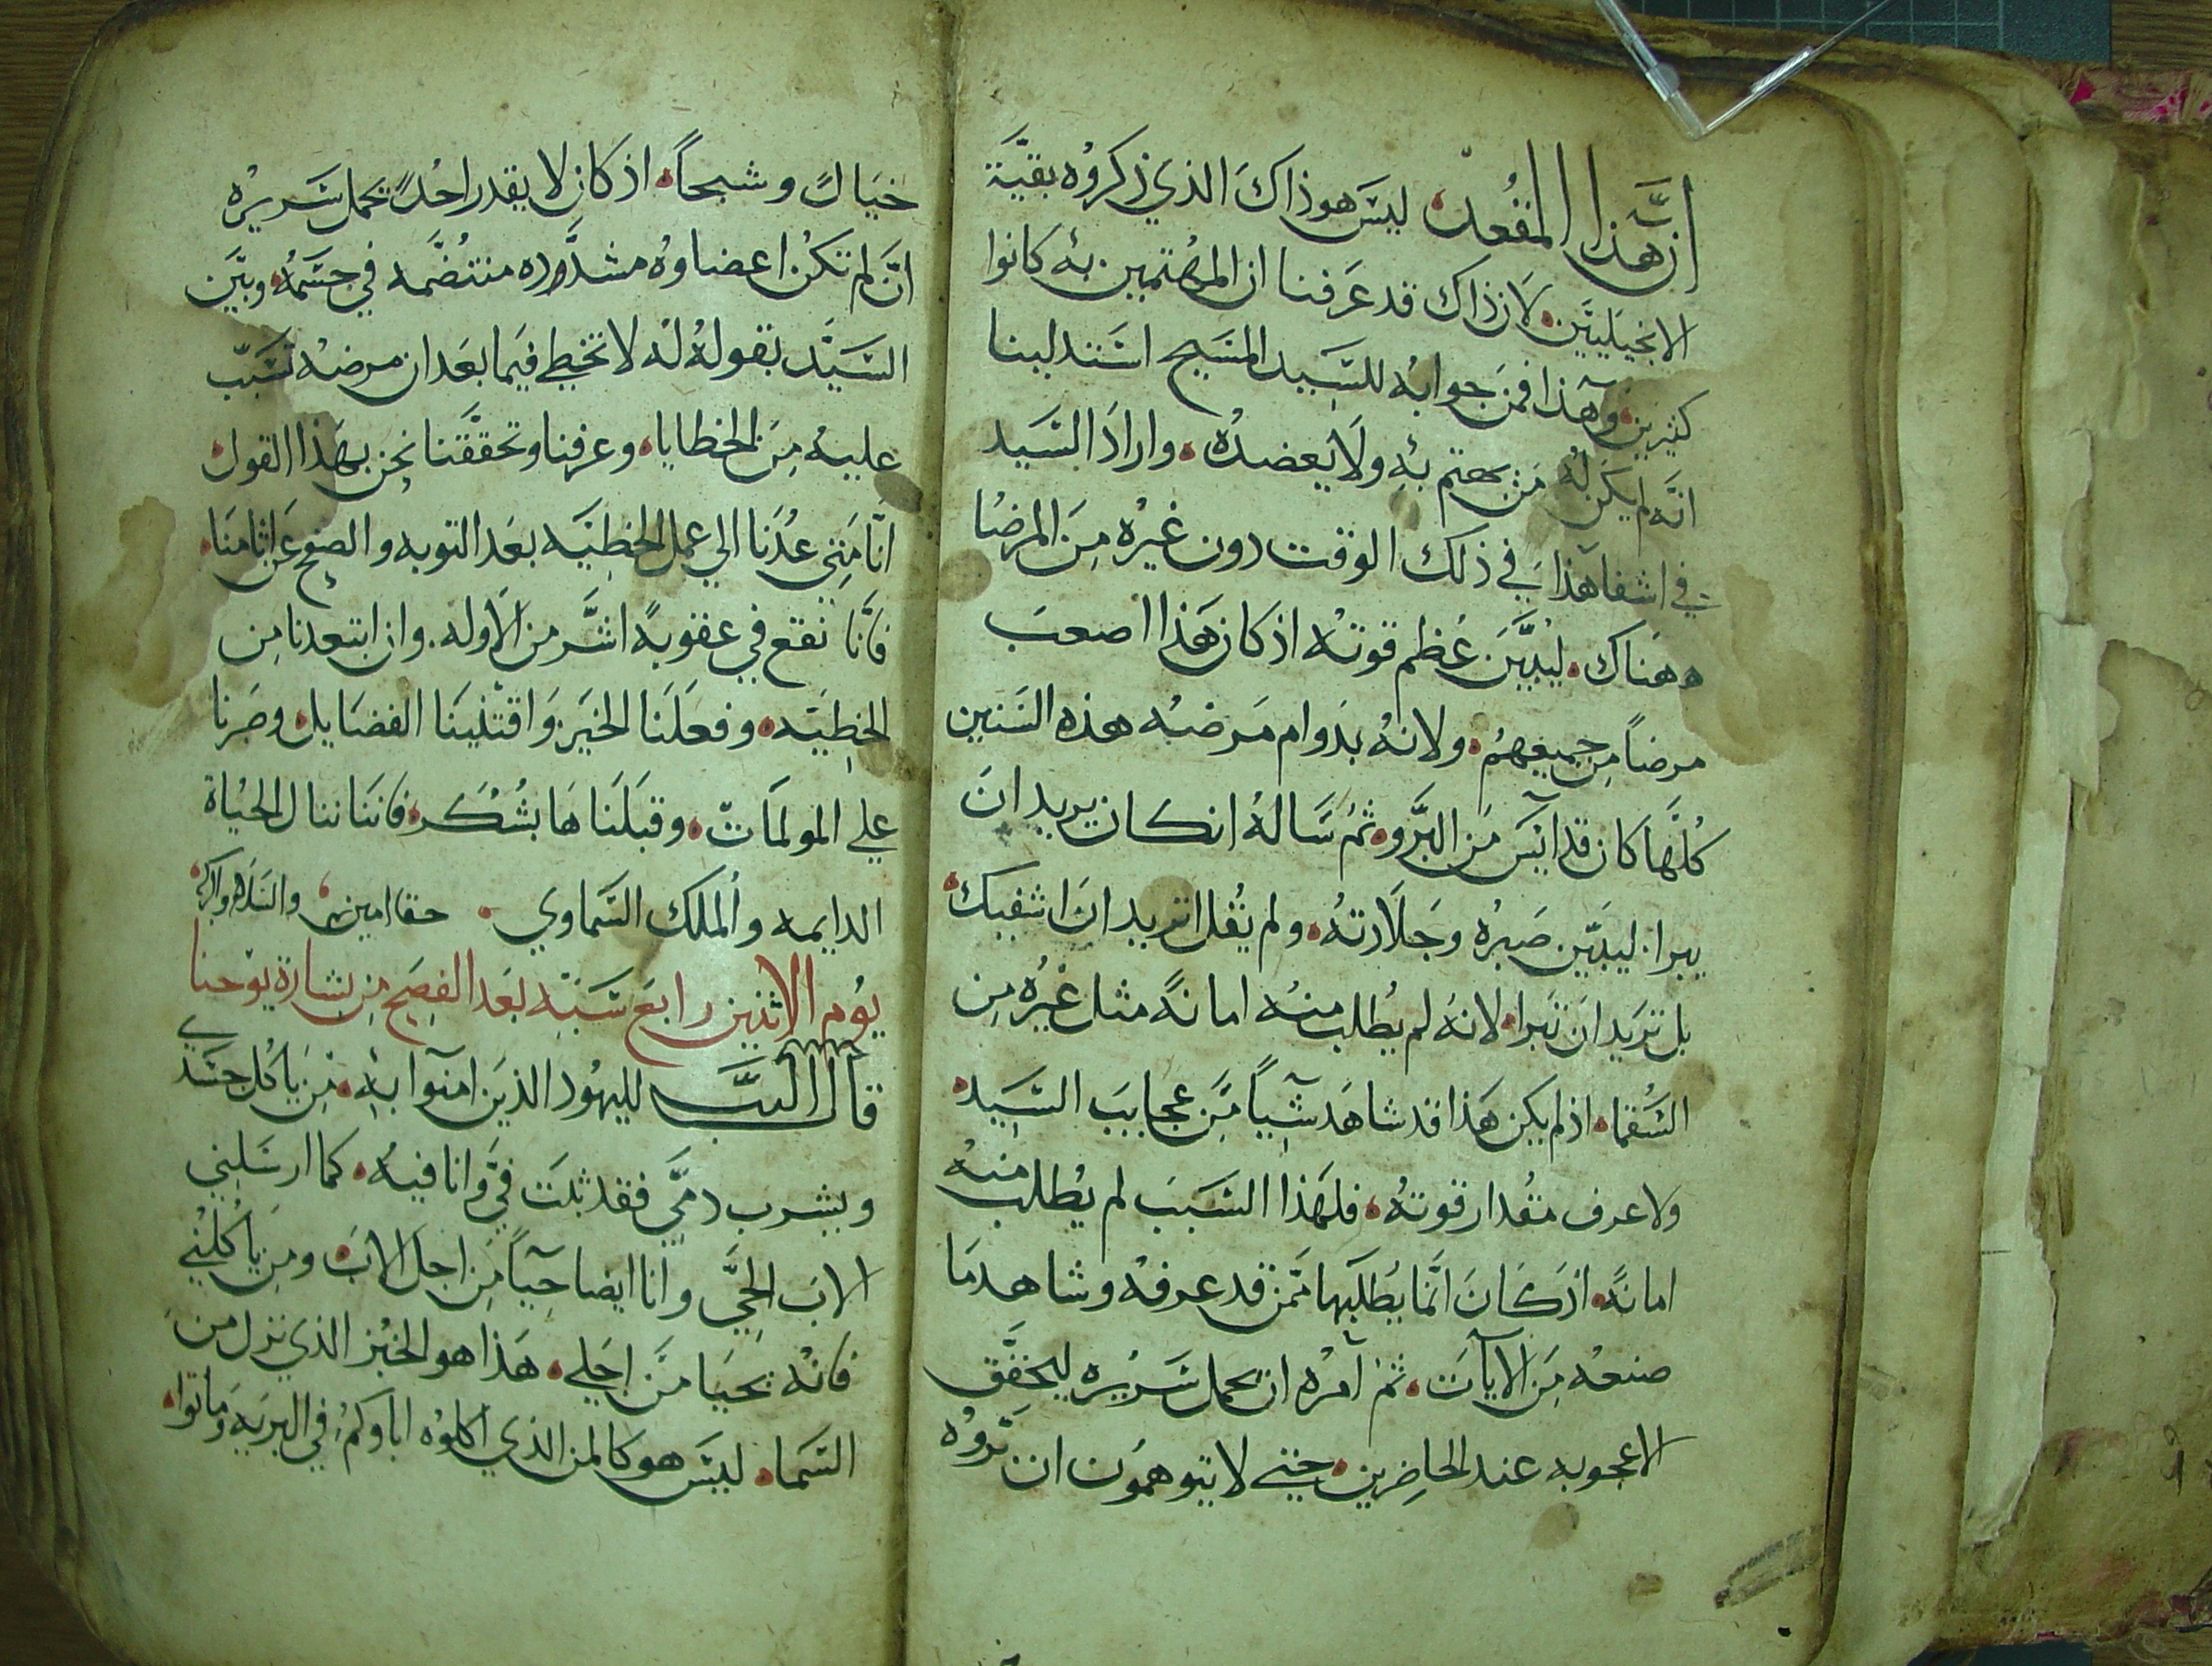 ان هذا المقعد ليس هو ذاك الذي ذكروه بقية
الانجيليين لان ذاك قد عرفنا ان المهتمين به كانوا
كثيرين وهذا فمن جوابه للسيد المسيح استدلينا
انه لم يكن له من يهتم به ولا يعضده واراد السيد
في اشفا هذا في ذلك الوقت دون غيره من المرضا
هناك ليبين عظم قوته اذ كان هذا اصعب
مرضاً من جميعهم ولانه بدوام مرضه هذه السنين
كلها كان قد ايس من البرو ثم ساله انكان يريد ان
يبرا ليبين صبره وجلادته ولم يقل اتريد ان اشفيك
بل تريد ان تبرا لانه لم يطلب منه امانةً مثل غيره من
السقما اذ لم يكن هذا قد شاهد شياً من عجايب السيد
ولا عرف مقدار قوته فلهذا السبب لم يطلب منه
امانه اذ كان انما يطلبها ممن قد عرفه وشاهد ما
صنعه من الايات ثم آمره ان يحمل سريره ليحقق
الاعجوبه عند الحاضرين حتى لا يتوهمون ان تروه
خيال وشبحاً اذ كان لا يقدر احد يحمل سريره
ان لم تكن اعضاوه مشدوده منتضمه في جسمه وبين
السيد بقوله له لا تخطي فيما بعد ان مرضه تسبب
عليه من الخطايا وعرفنا وتحققنا نحن بهذا القول
انا متى عدنا الي عمل الخطيه بعد التوبه والصفح عن اثامنا
فانا نقع في عقوبةً اشر من الاوله وان ابتعدنا من
الخطيه وفعلنا الخير واقتنينا الفضايل وصبرنا
علي المولمات وقبلناها بشكر فاننا ننال الحياة
الدايمه والملك السماوي حقا امين والسلام والبركه
يوم الاثنين رابع سبته بعد الفصح من بشارة يوحنا
قال الرب لليهود الذين امنوا به من ياكل جسدي
ويشرب دمي فقد ثبت في وانا فيه كما ارسلني
الاب الحي وانا ايضا حياً من اجل الاب ومن ياكلني
فانه يحيا من اجلي هذا هو الخبز الذي نزل من
السما ليس هو كالمن الذي اكلوه اباوكم في البريه وماتوا